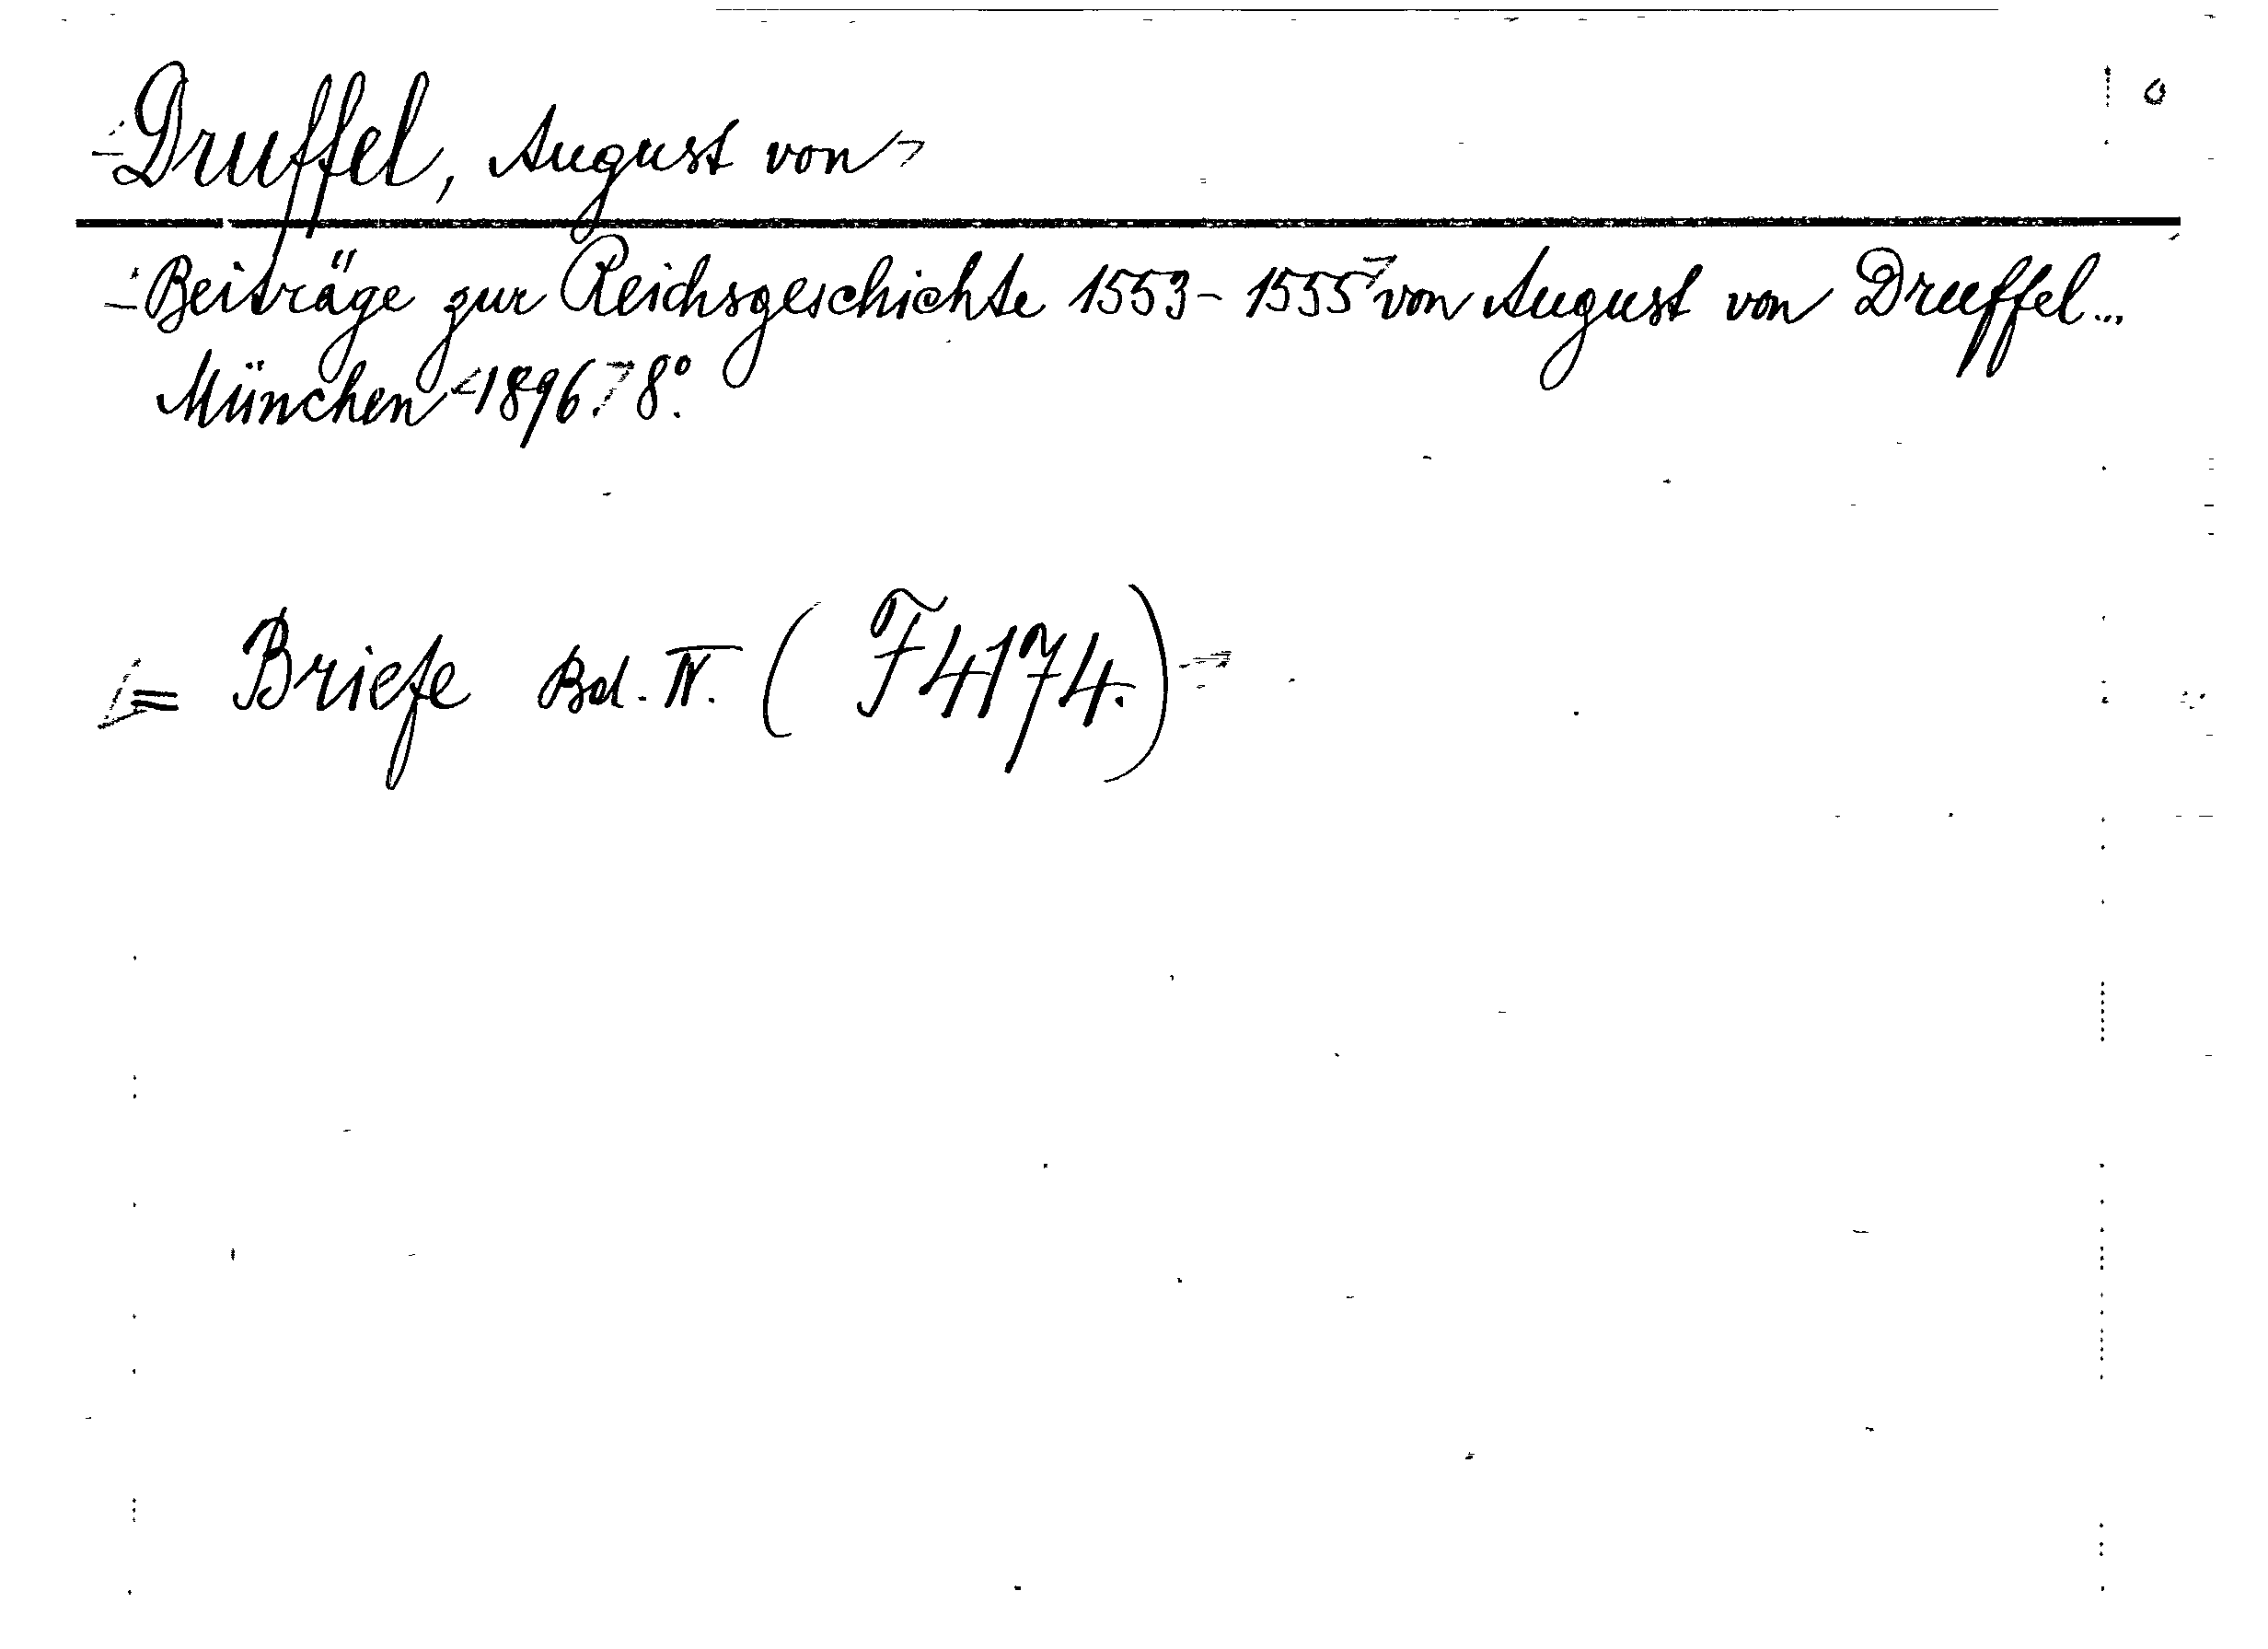 Druffel, August von
Beiträge zur Reichsgeschichte 1553-1555 von August von Druffel...
München <1896> 8°.
= Briefe Bd. IV. (F 4174.)